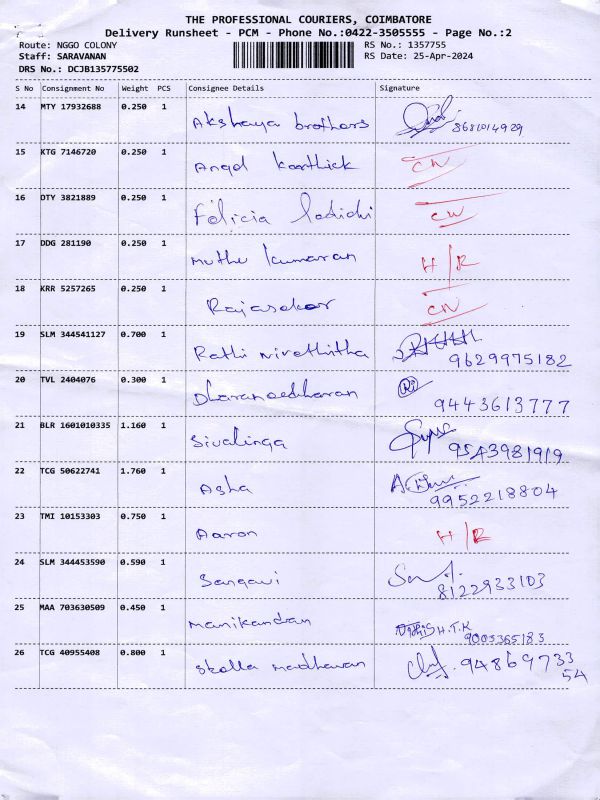 THE PROFESSIONAL COURIERS, COIMBATORE
Delivery Runsheet - PCM - Phone No.:0422-3505555 - Page No.:2
Route: NGGO COLONY RS No.: 1357755
Staff: SARAVANAN RS Date: 25-Apr-2024
DRS No.: DCJB135775502
S No Consignment No Weight PCS Consignee Details Signature
14 MTY 17932688 0.250 1 Akshaya brothers 8681014929
15 KTG 7146720 0.250 1 Angel karthick CN
16 OTY 3821889 0.250 1 Felicia CN
17 DDG 281190 0.250 1 Muthu kumaran H/R
18 KRR 5257265 0.250 1 Rajasekar CN
19 SLM 344541127 0.700 1 Rathi nivethitha 9629975182
20 TVL 2404076 0.300 1 9443613777
21 BLR 1601010335 1.160 1 Sivalinga 9543981919
22 TCG 50622741 1.760 1 Asha 9952218804
23 TMI 10153303 0.750 1 Aaron H/R
24 SLM 344453590 0.590 1 Sangavi 8122933103
25 MAA 703630509 0.450 1 Manikandan H.T.K 9003365183
26 TCG 40955408 0.800 1 madhavan 9486973354